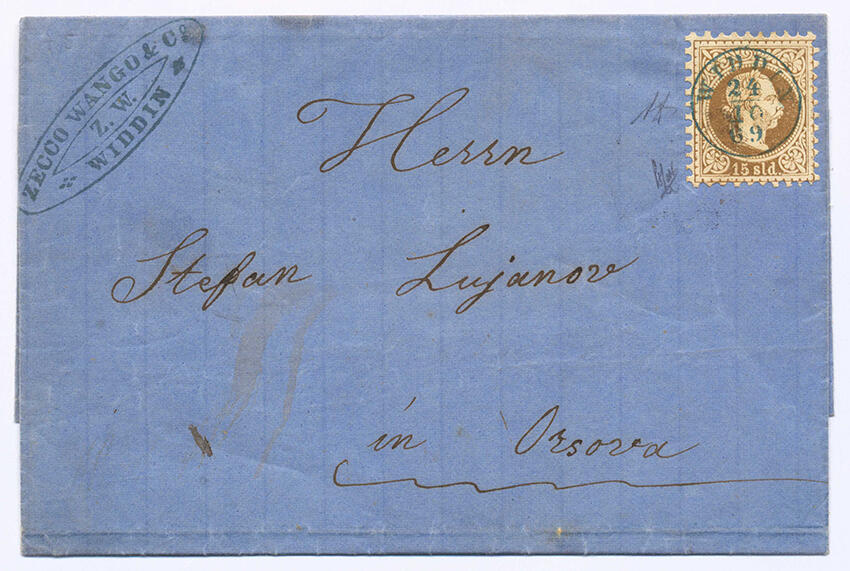 ZECCO WANGO & Co
Z. W.
WIDDIN
WIDDIN
24
10
69
15 sld.
Herrn
Stefan Lujanov
in Orsova